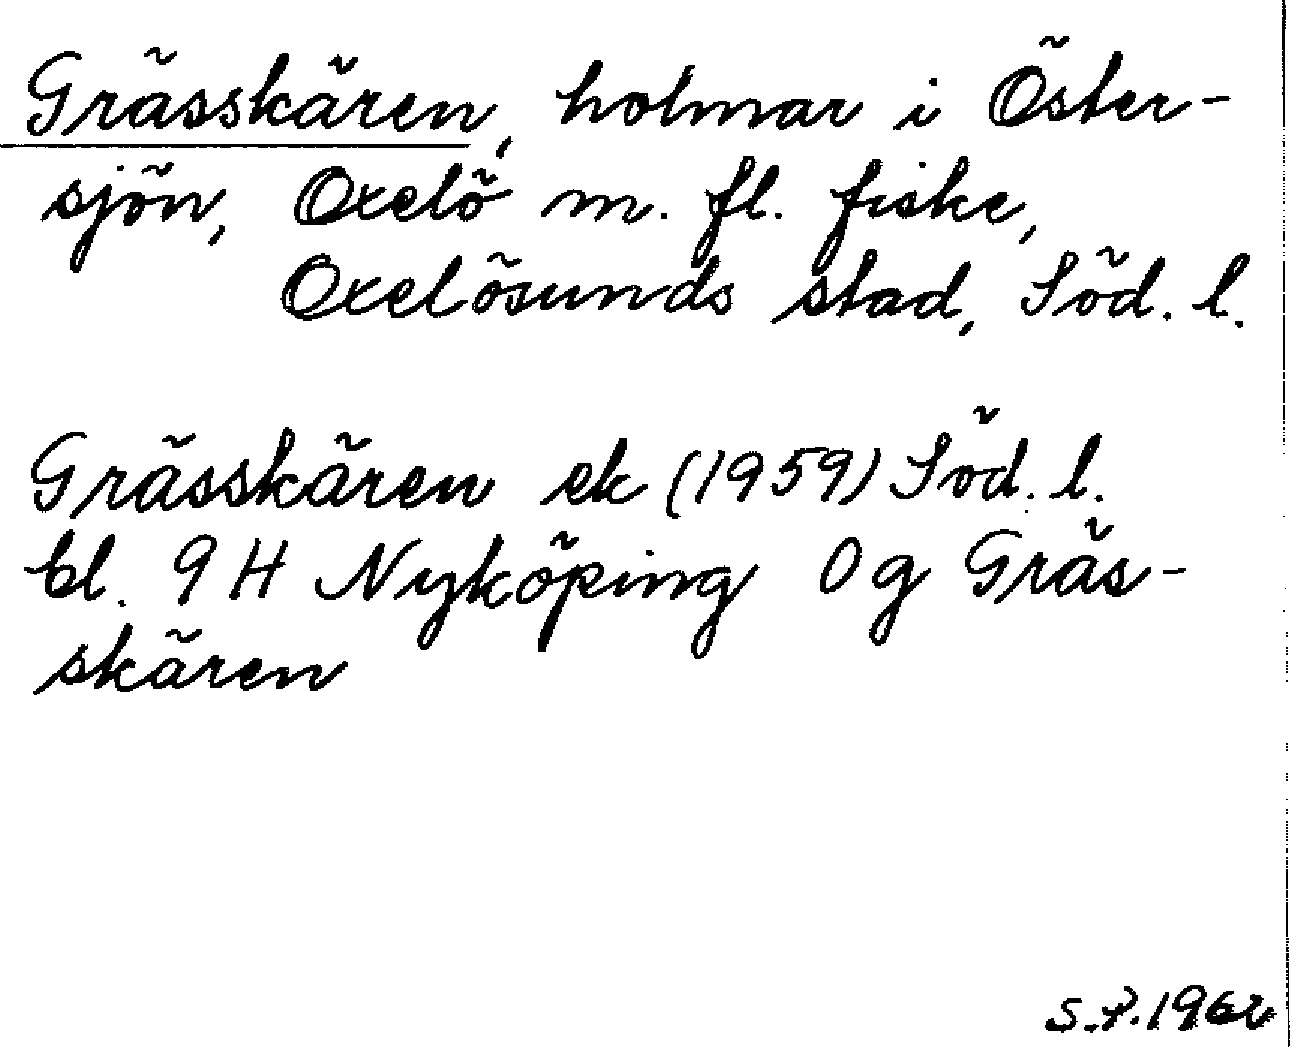 Grässkären, holmar i Öster-
sjön, Oxelö m. fl. fiske,
Oxelösunds stad, Söd. l.
Grässkären ek (1959) Söd. l.
bl. 9 H Nyköping 0 g Gräs-
skären
S.P. 1962